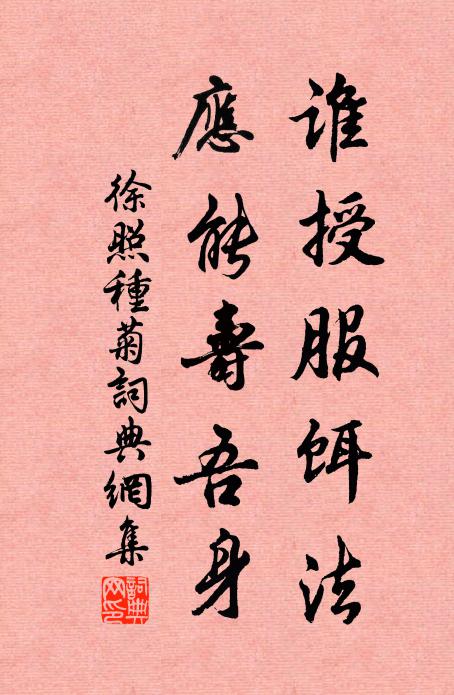 誰授服餌法
應能壽吾身
徐照種菊詞典網集
詞典网印